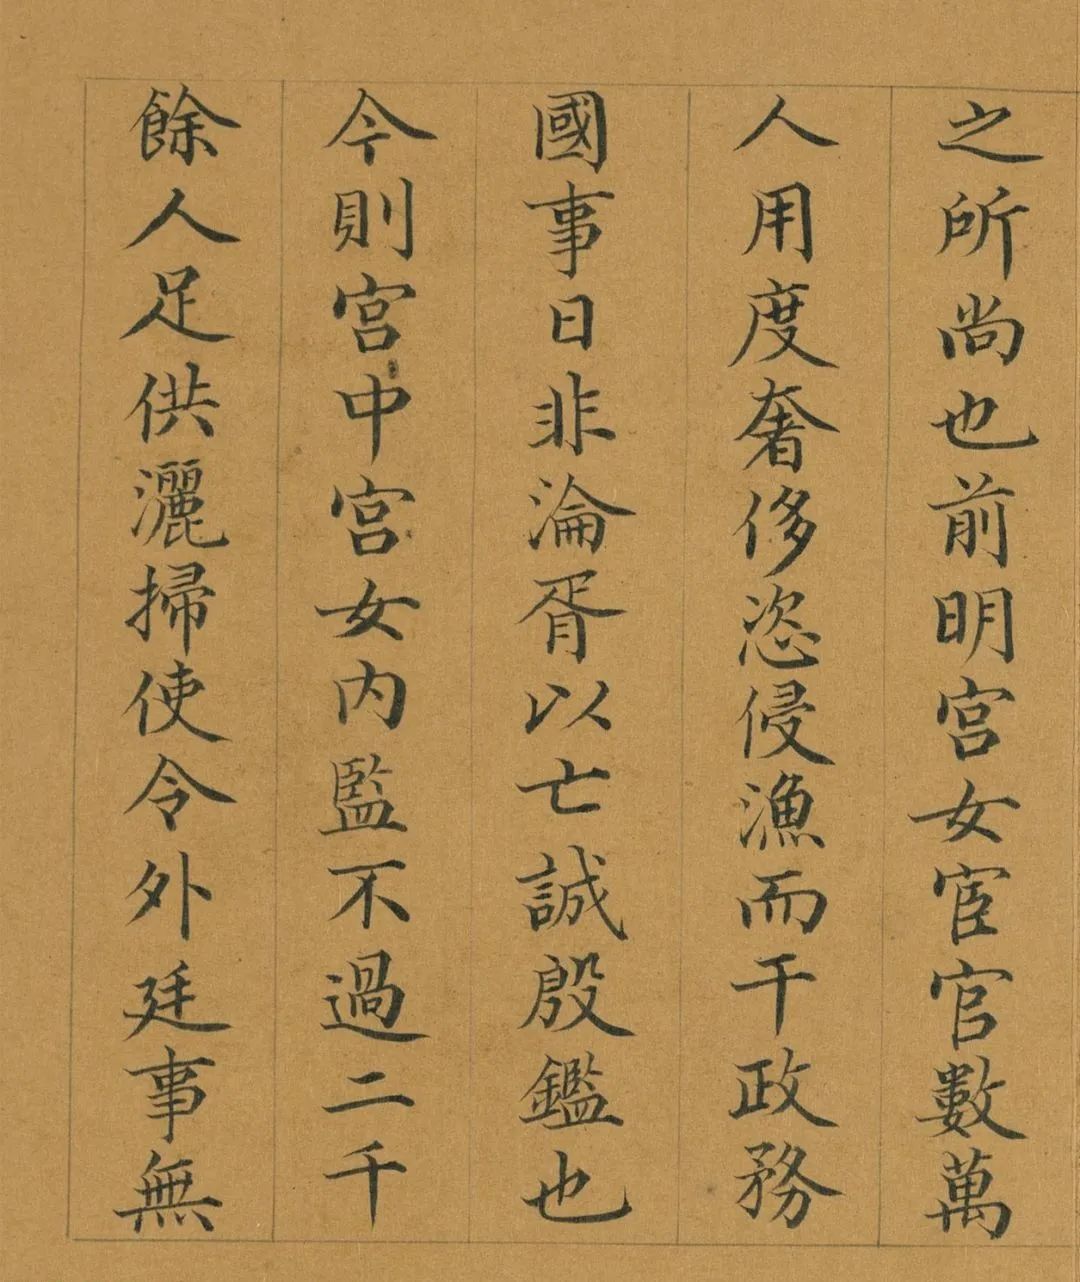 之所尚也前明宮女宦官數萬
人用度奢侈恣侵漁而干政務
國事日非淪胥以亡誠殷鑑也
今則宮中宮女內監不過二千
餘人足供灑掃使令外廷事無